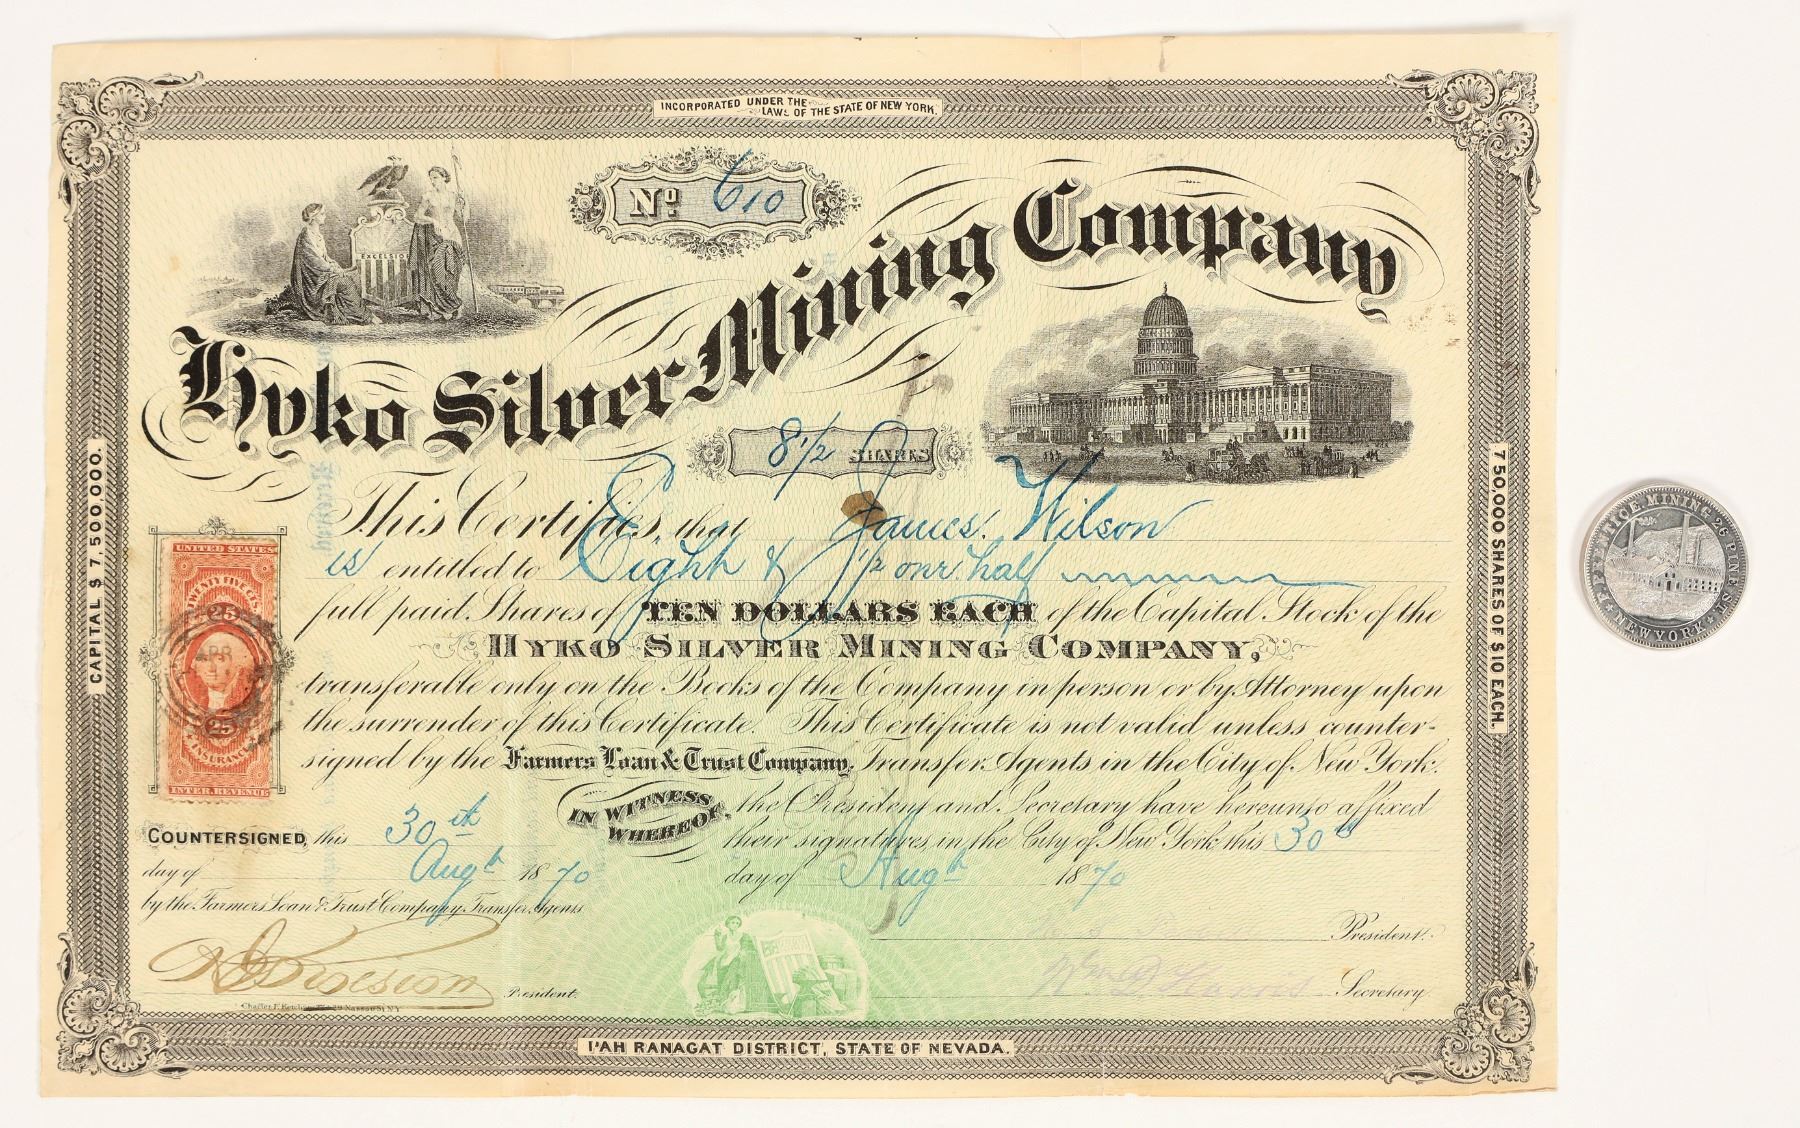 INCORPORATED UNDER THE
LAWS OF THE STATE OF NEW YORK.
EXCELSIOR
No. 610
Hyko Silver Mining Company
8 1/2 SHARES
This Certifies, that James Wilson
is entitled to Eight & 1/2 one half
full paid Shares of TEN DOLLARS EACH of the Capital Stock of the
HYKO SILVER MINING COMPANY,
transferable only on the Books of the Company in person or by Attorney upon
the surrender of this Certificate. This Certificate is not valid unless counter-
signed by the Farmers Loan & Trust Company, Transfer Agents in the City of New York.
IN WITNESS WHEREOF, the President and Secretary have hereunto affixed
their signatures, in the City of New York this 30th
day of Augth 1870
President.
Secretary.
COUNTERSIGNED, this 30th
day of Augth 1870
by the Farmers Loan & Trust Company, Transfer Agents
President.
CAPITAL $7,500,000.
750,000 SHARES OF $10 EACH.
UNITED STATES
TWENTY FIVE CTS.
25
APR
25
INSURANCE
INTER. REVENUE
PAH RANAGAT DISTRICT, STATE OF NEVADA.
MINING 26 PINE ST.
NEW YORK